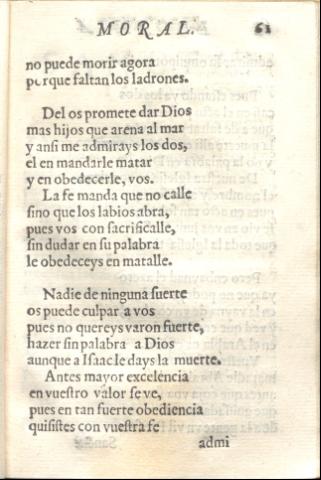 MORAL. 61
no puede morir agora
porque faltan los ladrones.
Del os promete dar Dios
mas hijos que arena al mar
y ansi me admirays los dos,
el en mandarle matar
y en obedecerle, vos.
La fe manda que no calle
sino que los labios abra,
pues vos con sacrificalle,
sin dudar en su palabra
le obedeceys en matalle.
Nadie de ninguna suerte
os puede culpar a vos
pues no quereys varon fuerte,
hazer sin palabra a Dios
aunque a Isaac le days la muerte.
Antes mayor excelencia
en vuestro valor se ve,
pues en tan fuerte obediencia
quisistes con vuestra fe
admi